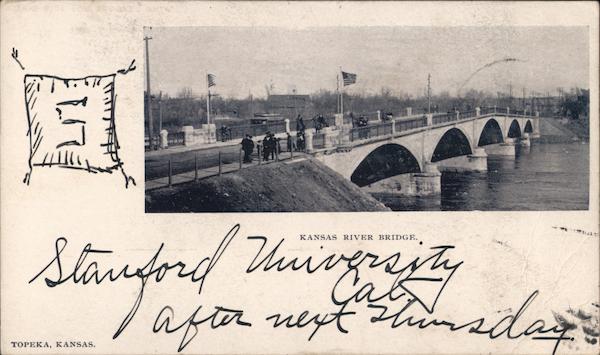 KANSAS RIVER BRIDGE.
Stanford University
Cal.
after next Thursday.
TOPEKA, KANSAS.